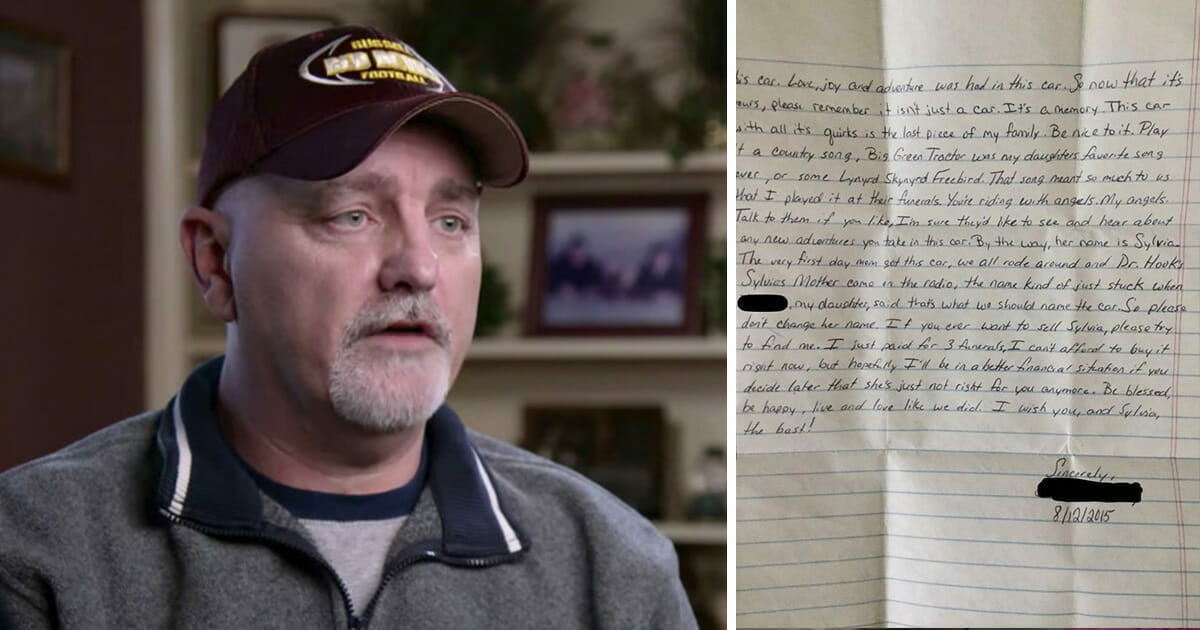 FOOTBALL
is car. Love, joy and adventure was had in this car. So now that it's
ours, please remember it isn't just a car. It's a memory. This car
with all it's quirks is the last piece of my family. Be nice to it. Play
it a country song, Big Green Tractor was my daughters favorite song
ever, or some Lynyrd Skynyrd Freebird. That song meant so much to us
that I played it at their funerals. You're riding with angels. My angels.
Talk to them if you like, I'm sure they'd like to see and hear about
any new adventures you take in this car. By the way, her name is Sylvia.
The very first day mom got this car, we all rode around and Dr. Hook's
Sylvias Mother came on the radio, the name kind of just stuck when
, my daughter, said thats what we should name the car. So please
don't change her name. If you ever want to sell Sylvia, please try
to find me. I just paid for 3 funerals, I can't afford to buy it
right now, but hopefully I'll be in a better financial situation if you
decide later that she's just not right for you anymore. Be blessed,
be happy, live and love like we did. I wish you, and Sylvia,
the best!
Sincerely,
8/12/2015